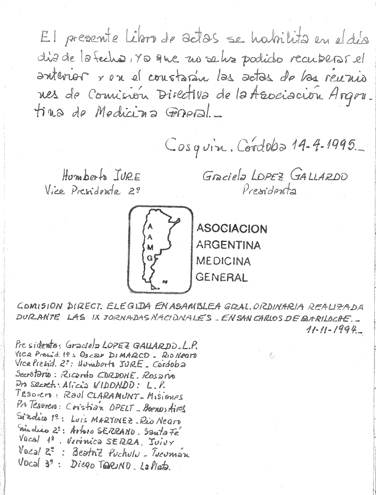 El presente Libro de actas se habilita en el día
dia de la fecha, ya que no se ha podido recuperar el
anterior y en el constarán las actas de las reunio
nes de Comisión Directiva de la Asociación Argen-
tina de Medicina General._
Cosquin. Córdoba 14-4-1995._
Humberto JURE
Vice Presidente 2º
Graciela LOPEZ GALLARDO
Presidenta
AAMG
ASOCIACION
ARGENTINA
MEDICINA
GENERAL
COMISION DIRECT. ELEGIDA EN ASAMBLEA GRAL. ORDINARIA REALIZADA
DURANTE LAS IX JORNADAS NACIONALES - EN SAN CARLOS DE BARILOCHE._
11-11-1994._
Presidente: Graciela LOPEZ GALLARDO - L.P.
Vice Presid. 1º: Oscar DIMARCO - Rio Negro
Vice Presid. 2º: Humberto JURE - Córdoba
Secretario: Ricardo CORDONE. Rosario
Pro Secret: Alicia VIDONDO: L.P.
Tesorero: Raul CLARAMUNT - Misiones
Pro Tesorero: Cristián OPELT - Buenos Aires
Sindico 1º: Luis MARTINEZ - Rio Negro
Sindico 2º: Arturo SERRANO - Santa Fé
Vocal 1º: Verónica SERRA. Jujuy
Vocal 2º: Beatriz Puchulu - Tucumán
Vocal 3º: Diego TORINO. La Plata.